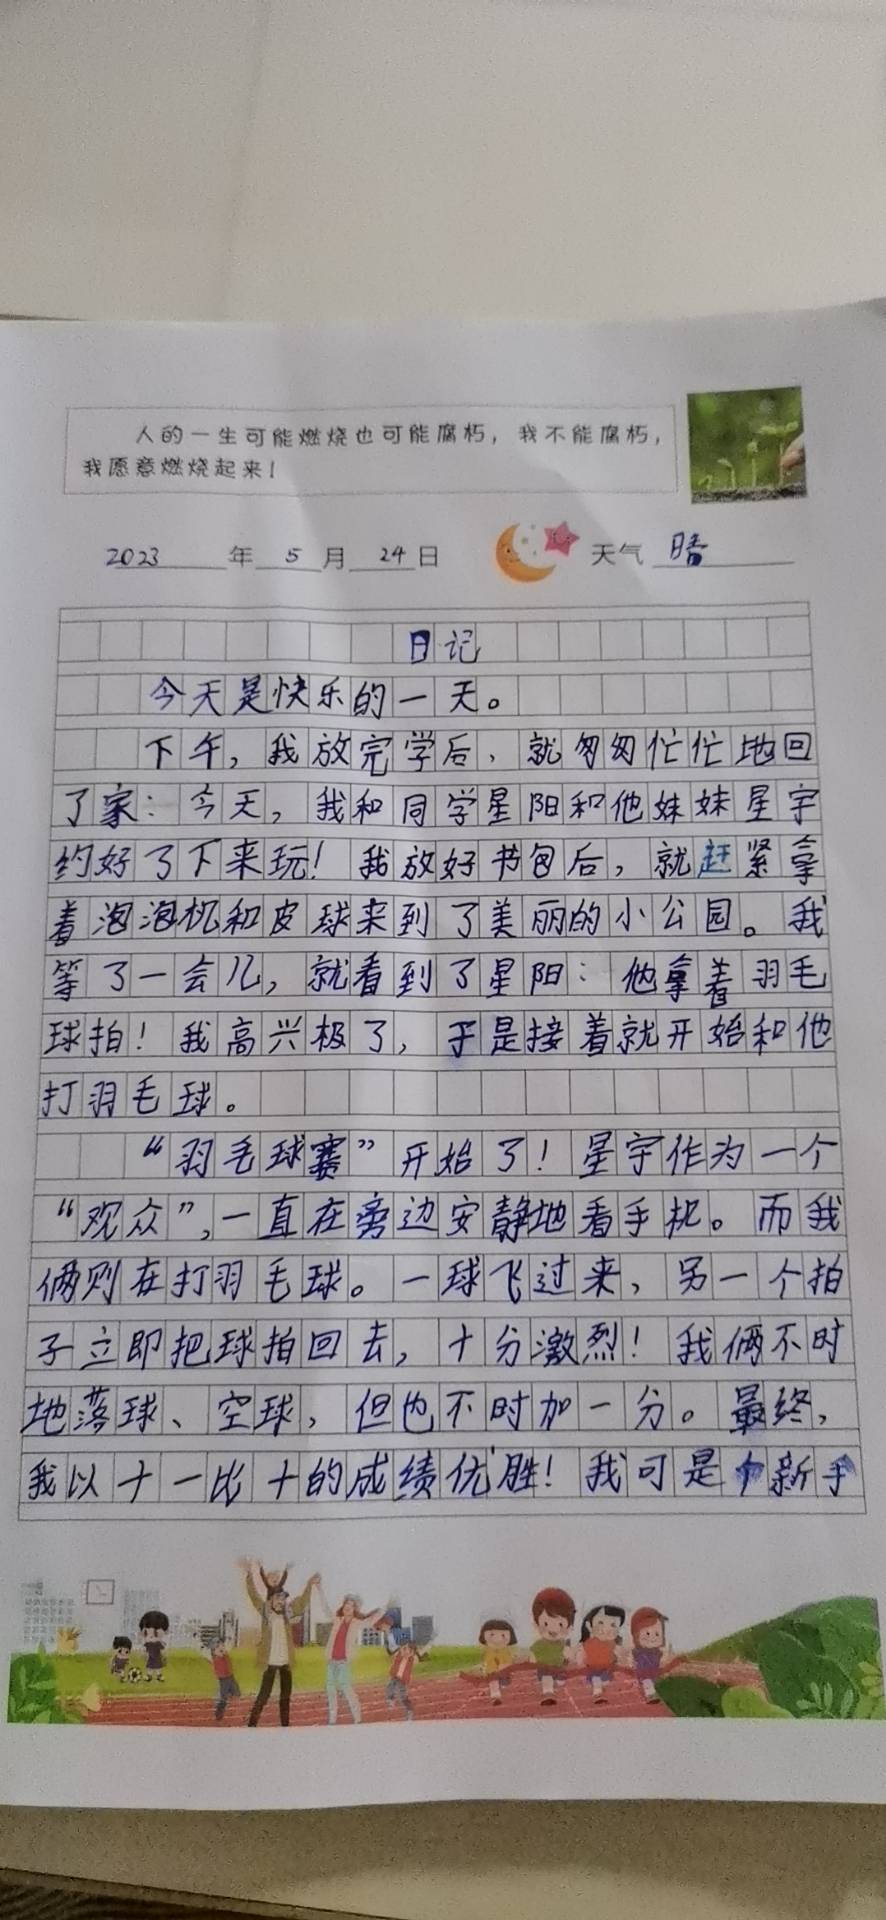 人的一生可能燃烧也可能腐朽，我不能腐朽，
我愿意燃烧起来！
2023年5月24日 天气 晴
日记
今天是快乐的一天。
下午，我放完学后，就匆匆忙忙地回
了家：今天，我和同学星阳和他妹妹星宇
约好了下来玩！我放好书包后，就赶紧拿
着泡泡机和皮球来到了美丽的小公园。我
等了一会儿，就看到了星阳：他拿着羽毛
球拍！我高兴极了，于是接着就开始和他
打羽毛球。
“羽毛球赛”开始了！星宇作为一个
“观众”，一直在旁边安静地看手机。而我
俩则在打羽毛球。一球飞过来，另一个拍
子立即把球拍回去，十分激烈！我俩不时
地落球、空球，但也不时加一分。最终，
我以十一比十的成绩优胜！我可是个新手